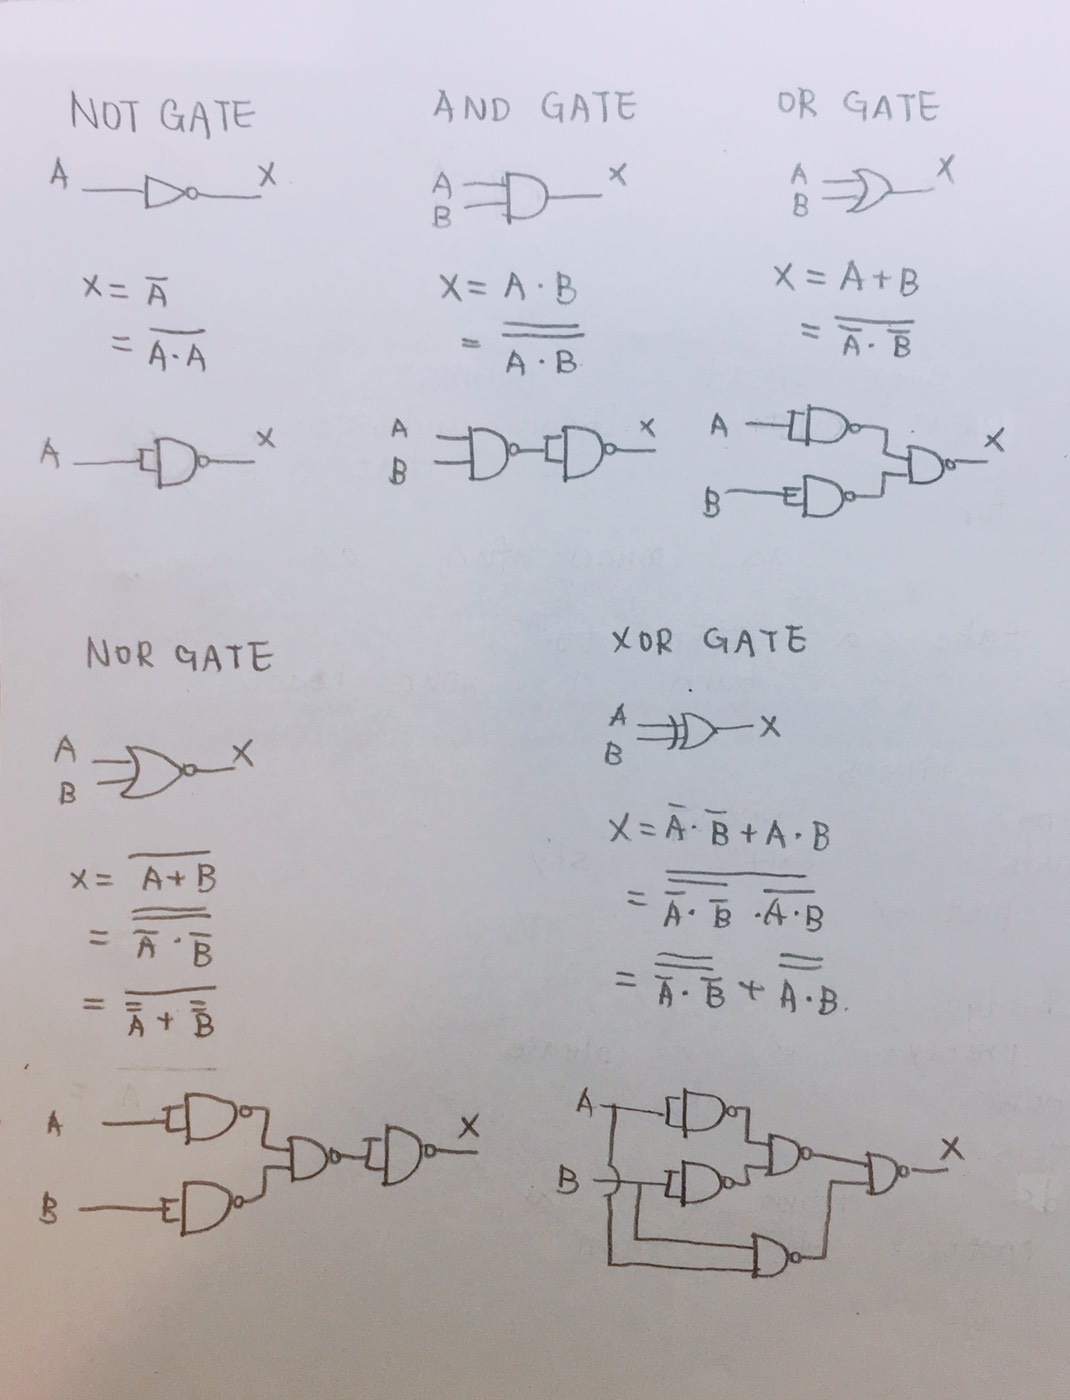 NOT GATE
A X
X = A̅
= A̅·̅A̅
A X
AND GATE
A X
B
X = A · B
= A̿ ̿·̿ ̿B̿
A X
B
OR GATE
A X
B
X = A + B
= A̿·̅B̿
A X
B
NOR GATE
A X
B
X = A̅+̅B̅
= A̅̅̅ ̿·̿ B̅̅̅
= A̅̅̅ ̅+̅ B̅̅̅
A X
B
XOR GATE
A X
B
X = A̅ · B̅ + A · B
= A̅̅̅·̿B̅̅̅ ̅·̅ A̿·̿B̿
= A̅̅̅·̿B̅̅̅ + A̿·̿B̿.
A X
B